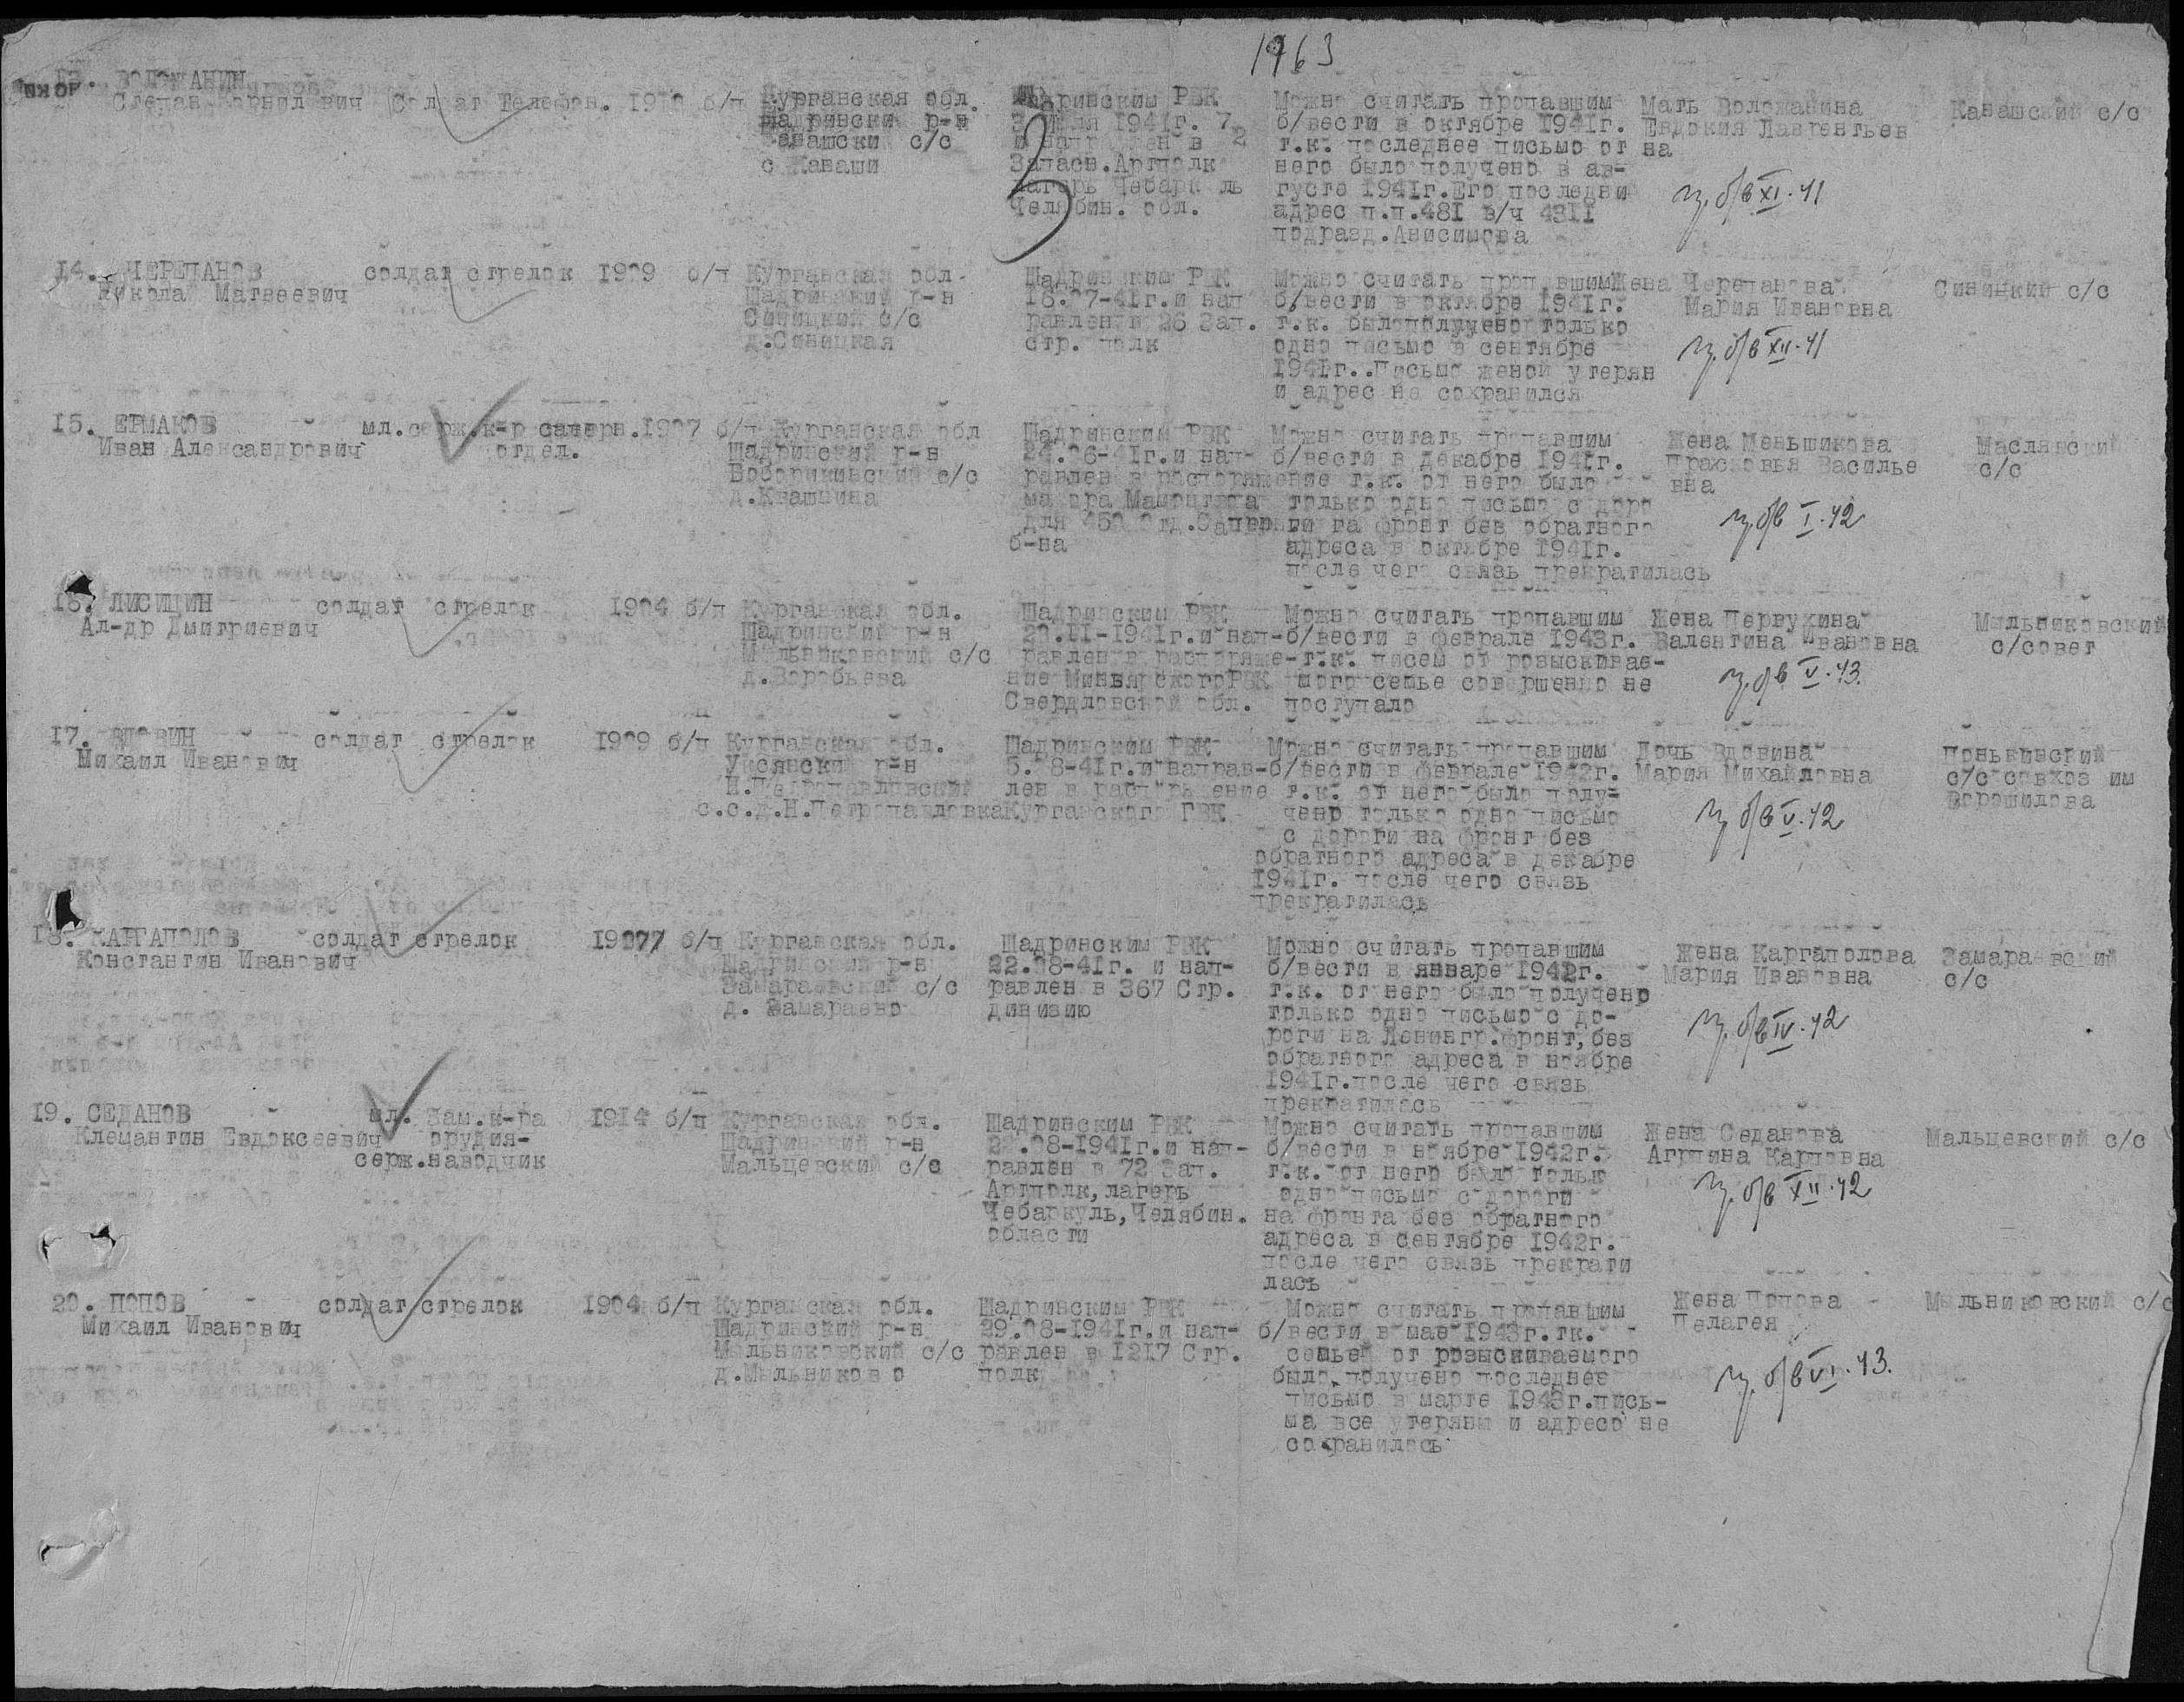 1963
13. ВОЛОЖАНИН
Степан вич Солдат Телефон. б/п
Курганская обл.
Шадрински р-н
Канашски с/с
с Канаши
Шадринским РВК
3 Июля 1941г. 72
и направлен в
Запасн.Артполк
лагерь Чебарк ль
Челябин. обл.
Можно считать пропавшим
б/вести в октябре 1941г.
т.к. последнее письмо от
него было получено в ав-
густе 1941г.Его последни
адрес п.п.481 в/ч 4311
подразд.Анисимова
Мать Воложанина
Евдокия Лаврентьев
на
пр. б/в XI-41
Канашский с/с
14. ЧЕРЕПАНОВ
Никола Матвеевич
солдат стрелок 1909 б/п
Курганская обл.
Шадринский р-н
Синицкий с/с
д.Синицкая
Шадринским РВК
18.07-41г.и нап
равлен в 26 Зап.
стр. полк
Можно считать проп вшим
б/вести в октябре 1941г.
т.к. было получено только
одно письмо в сентябре
1941г..Письмо женой утерян
и адрес не сохранился
Жена Черепанова
Мария Ивановна
пр. б/в XII-41
Синицкий с/с
15. ЕРМАКОВ
Иван Александрович
мл.серж.к-р саперн.1907 б/п
отдел.
Курганская обл
Шадринский р-н
Боборикинский с/с
д.Квашнина
Шадринским РВК
24.06-41г.и нап-
равлен в распоряжение
майора
для 450 Отд.Саперн
б-на
Можно считать пропавшим
б/вести в декабре 1941г.
т.к. от него было
только одно письмо с доро
ги на фронт без обратного
адреса в октябре 1941г.
после чего связь прекратилась
Жена Меньшикова
Прасковья Василье
вна
пр. б/в I-42
Маслянский
с/с
16. ЛИСИЦИН
Ал-др Дмитриевич
солдат стрелок 1904 б/п
Курганская обл.
Шадринский р-н
Мыльниковский с/с
д.Воробьева
Шадринским РВК
20.11-1941г.и нап-
равлен в распоряже-
ние РВК
Свердловской обл.
Можно считать пропавшим
б/вести в феврале 1943г.
т.к. писем от розыскивае-
мого семье совершенно не
поступало
Жена Первухина
Валентина Ивановна
пр. б/в V-43.
Мыльниковский
с/совет
17. ВДОВИН
Михаил Иванович
солдат стрелок 1909 б/п
Курганская обл.
Уксянский р-н
Н.Петропавловский
с.с.д.Н.Петропавловка
Шадринским РВК
5. 8-41г.и направ-
лен в распоряжение
Курганского ГВК
Можно считать пропавшим
б/вести в феврале 1942г.
т.к. от него было полу-
чено только одно письмо
с дороги на фронт без
обратного адреса в декабре
1941г. после чего связь
прекратилась
Дочь Вдовина
Мария Михайловна
пр. б/в V-42
Понькинский
с/с совхоз им
Ворошилова
18. КАРГАПОЛОВ
Константин Иванович
солдат стрелок 19077 б/п
Курганская обл.
Шадринский р-н
Замараевский с/с
д. Замараево
Шадринским РВК
22.08-41г. и нап-
равлен в 367 Стр.
дивизию
Можно считать пропавшим
б/вести в январе 1942г.
т.к. от него было получено
только одно письмо с до-
роги на Ленингр.фронт,без
обратного адреса в ноябре
1941г.после чего связь
прекратилась
Жена Каргаполова
Мария Ивановна
пр. б/в IV-42
Замараевский
с/с
19. СЕДАНОВ
Клемантин Евдоксеевич
мл. Зам.к-ра
орудия-
серж.наводчик
1914 б/п
Курганская обл.
Шадринский р-н
Мальцевский с/с
Шадринским РВК
.08-1941г.и нап-
равлен в 72 Зап.
Артполк,лагерь
Чебаркуль,Челябин.
области
Можно считать пропавшим
б/вести в ноябре 1942г.
т.к. от него было тольк
одно письмо с дороги
на фронта без обратного
адреса в сентябре 1942г.
после чего связь прекрати
лась
Жена Седанова
Агрпина Карповна
пр. б/в XII-42
Мальцевский с/с
20. ПОПОВ
Михаил Иванович
солдат стрелок 1904 б/п
Курганская обл.
Шадринский р-н
Мыльниковский с/с
д.Мыльниково
Шадринским РВК
29.08-1941г.и нап-
равлен в 1217 Стр.
полк
Можно считать пропавшим
б/вести в мае 1943г.тк.
семьей от розыскиваемого
было получено последнее
письмо в марте 1943г.пись-
ма все утеряны и адреса не
сохранилось
Жена Попова
Пелагея
пр. б/в VI-43.
Мыльниковский с/с